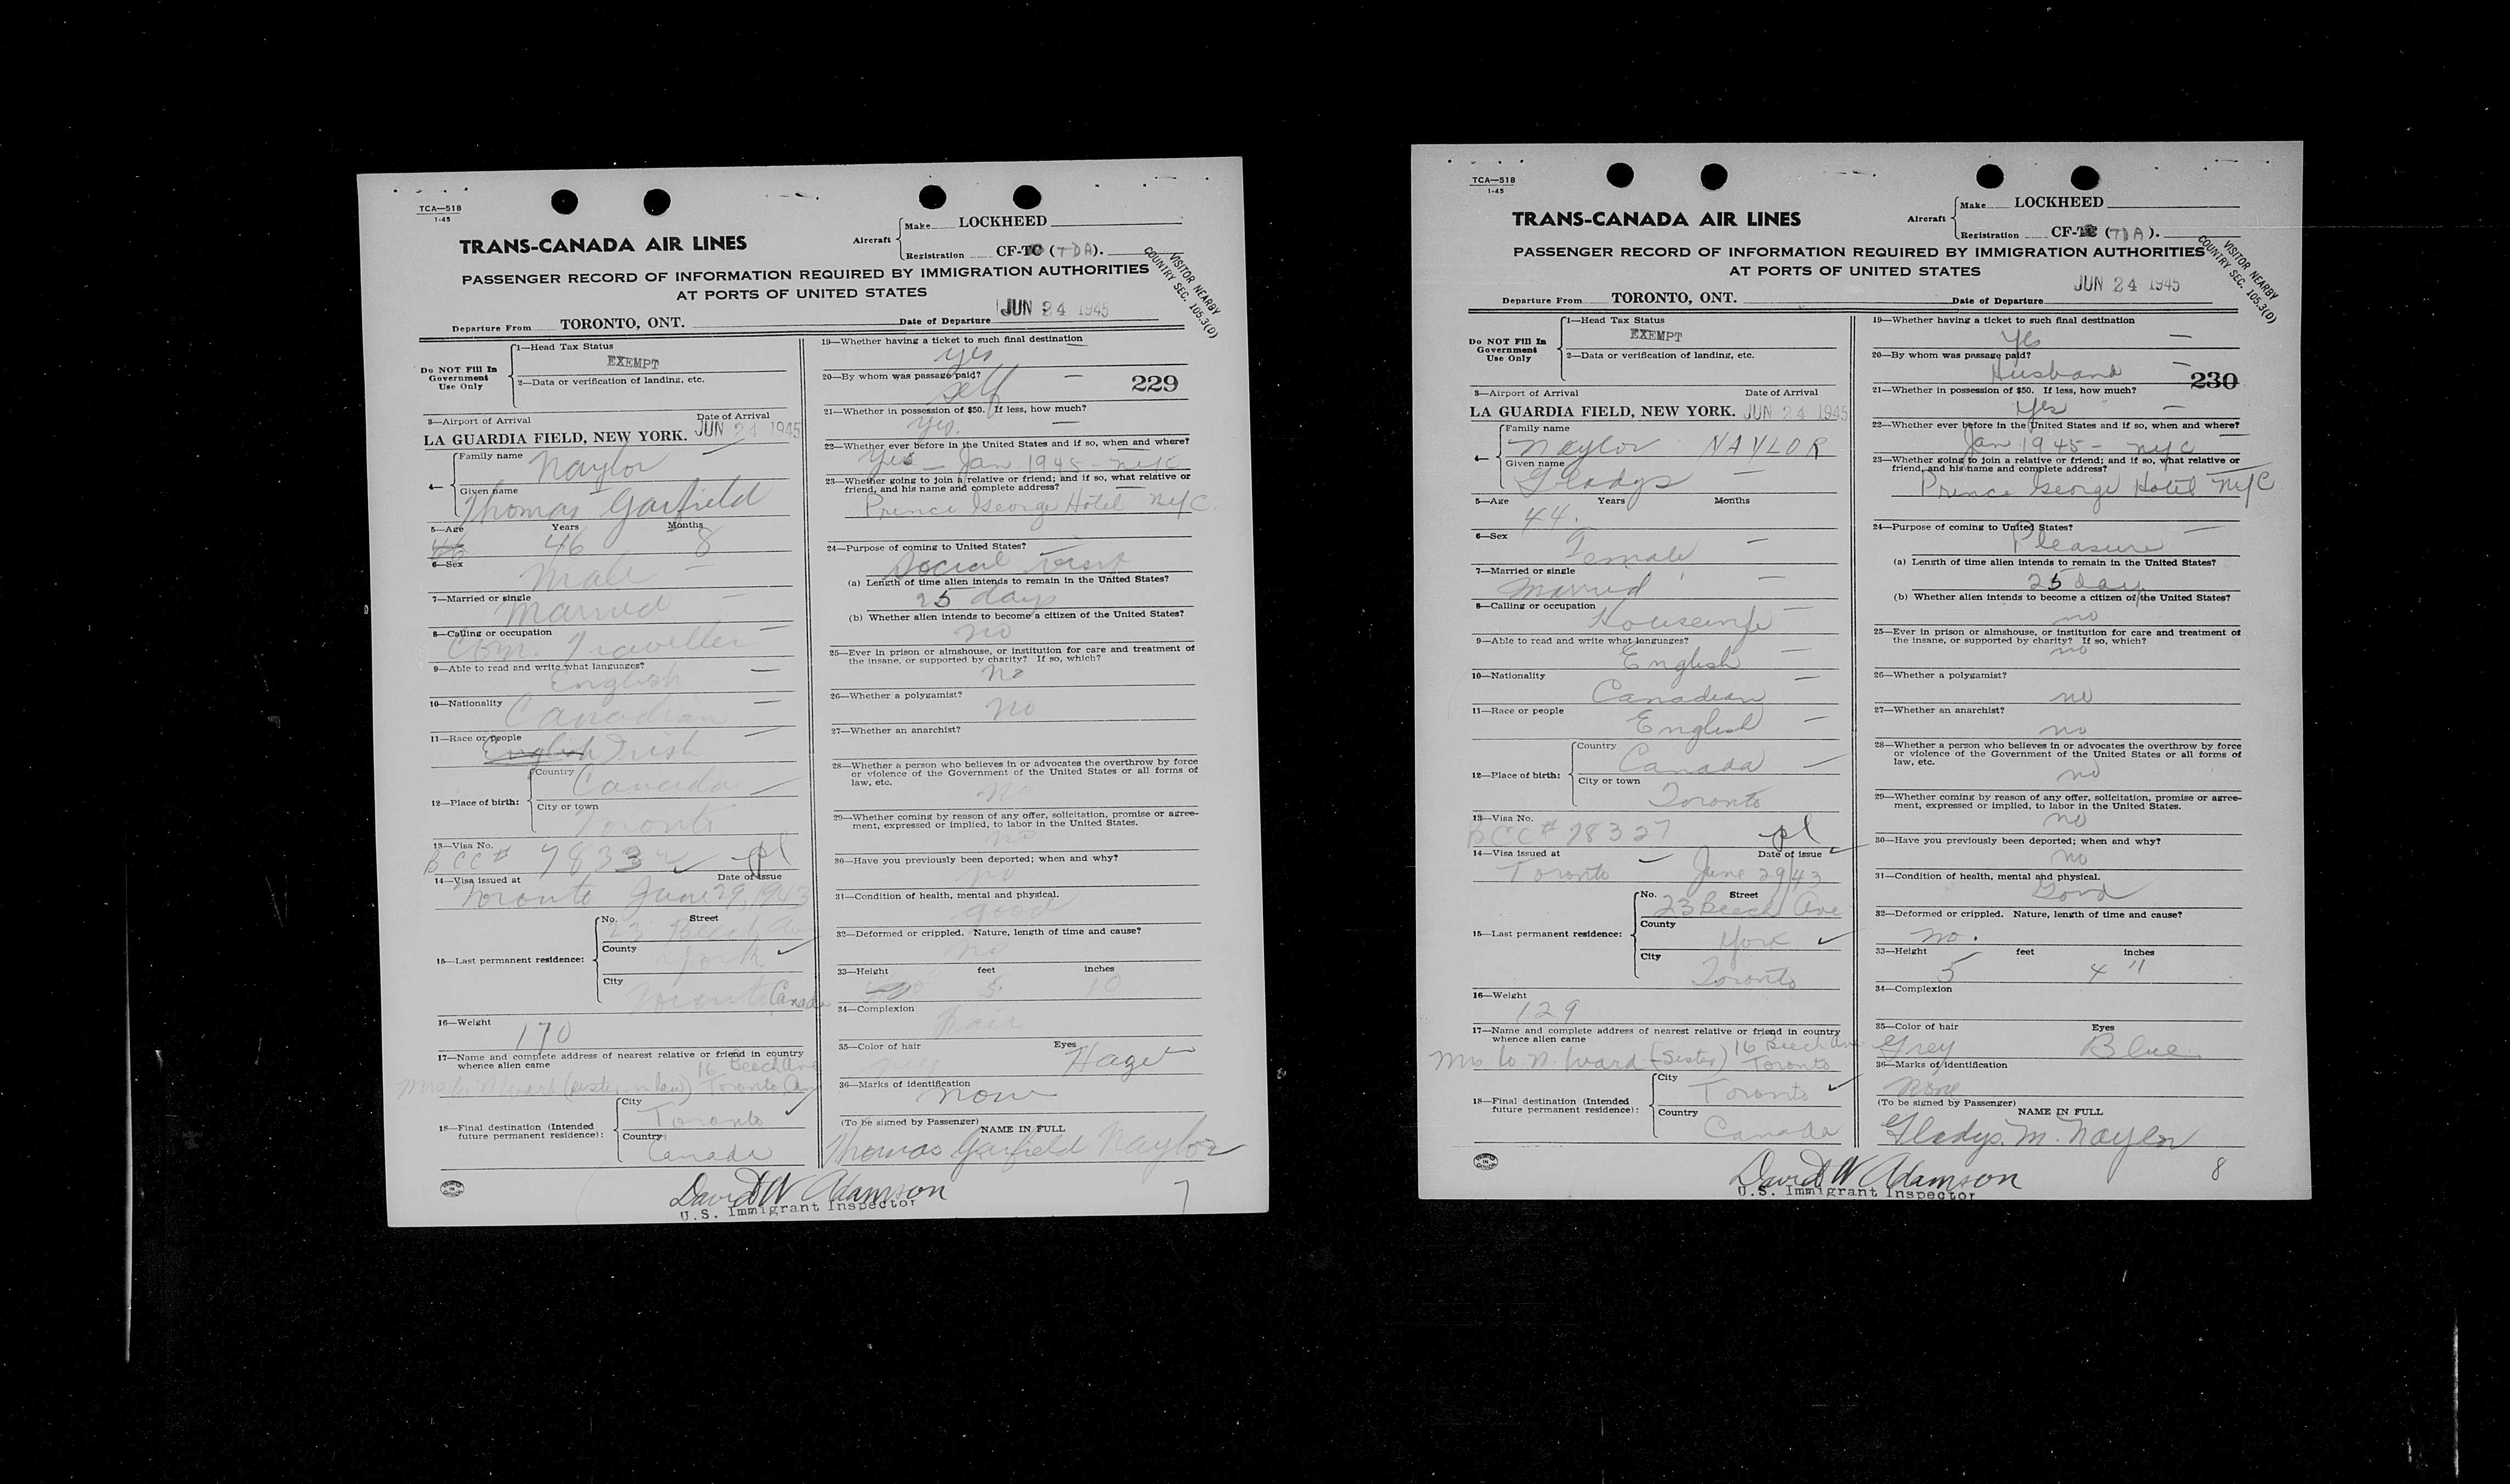 TCA—518
1-45
TRANS-CANADA AIR LINES
Aircraft
Make LOCKHEED
Registration CF-TC (TDA).
PASSENGER RECORD OF INFORMATION REQUIRED BY IMMIGRATION AUTHORITIES
AT PORTS OF UNITED STATES
VISITOR NEARBY
COUNTRY SEC. 105.3(D)
Departure From TORONTO, ONT.
Date of Departure JUN 24 1945
Do NOT Fill In
Government
Use Only
1—Head Tax Status
EXEMPT
2—Data or verification of landing, etc.
3—Airport of Arrival Date of Arrival
LA GUARDIA FIELD, NEW YORK. JUN 24 1945
4—
Family name Naylor
Given name
Thomas Garfield
5—Age Years Months
46 46 8
6—Sex
Male
7—Married or single
Married
8—Calling or occupation
Com. Traveller
9—Able to read and write what languages?
English
10—Nationality
Canadian
11—Race or people
English Irish
12—Place of birth:
Country
Canada
City or town
Toronto
13—Visa No.
BCC# 78332 pl
14—Visa issued at Date of issue
Toronto June 29, 1943
15—Last permanent residence:
No. Street
23 Beech Ave
County
York
City
Toronto Canada
16—Weight
170
17—Name and complete address of nearest relative or friend in country
whence alien came
16 Beech Ave
Mrs W. N. Ward (sister in law) Toronto
18—Final destination (Intended
future permanent residence):
City
Toronto
Country
Canada
19—Whether having a ticket to such final destination
Yes
20—By whom was passage paid?
Self
229
21—Whether in possession of $50. If less, how much?
Yes.
22—Whether ever before in the United States and if so, when and where?
Yes — Jan 1945 - NYC
23—Whether going to join a relative or friend; and if so, what relative or
friend, and his name and complete address?
Prince George Hotel NYC.
24—Purpose of coming to United States?
Social visit
(a) Length of time alien intends to remain in the United States?
25 days
(b) Whether alien intends to become a citizen of the United States?
no
25—Ever in prison or almshouse, or institution for care and treatment of
the insane, or supported by charity? If so, which?
no
26—Whether a polygamist?
no
27—Whether an anarchist?
28—Whether a person who believes in or advocates the overthrow by force
or violence of the Government of the United States or all forms of
law, etc.
no
29—Whether coming by reason of any offer, solicitation, promise or agree-
ment, expressed or implied, to labor in the United States.
no
30—Have you previously been deported; when and why?
no
31—Condition of health, mental and physical.
good
32—Deformed or crippled. Nature, length of time and cause?
no
33—Height feet inches
5 10
34—Complexion
Fair
35—Color of hair Eyes
grey Hazel
36—Marks of identification
none
(To be signed by Passenger)
NAME IN FULL
Thomas Garfield Naylor
David W Adamson
U.S. Immigrant Inspector
7
TCA—518
1-45
TRANS-CANADA AIR LINES
Aircraft
Make LOCKHEED
Registration CF-TC (TDA).
PASSENGER RECORD OF INFORMATION REQUIRED BY IMMIGRATION AUTHORITIES
AT PORTS OF UNITED STATES
VISITOR NEARBY
COUNTRY SEC. 105.3(D)
Departure From TORONTO, ONT.
Date of Departure JUN 24 1945
Do NOT Fill In
Government
Use Only
1—Head Tax Status
EXEMPT
2—Data or verification of landing, etc.
3—Airport of Arrival Date of Arrival
LA GUARDIA FIELD, NEW YORK. JUN 24 1945
4—
Family name
Naylor NAYLOR
Given name
Gladys
5—Age Years Months
44.
6—Sex
Female
7—Married or single
Married
8—Calling or occupation
Housewife
9—Able to read and write what languages?
English
10—Nationality
Canadian
11—Race or people
English
12—Place of birth:
Country
Canada
City or town
Toronto
13—Visa No.
BCC# 78327 pl
14—Visa issued at Date of issue
Toronto June 29/43
15—Last permanent residence:
No. Street
23 Beech Ave
County
York
City
Toronto
16—Weight
129
17—Name and complete address of nearest relative or friend in country
whence alien came
16 Beech Ave
Mrs W. N. Ward (Sister) Toronto
18—Final destination (Intended
future permanent residence):
City
Toronto
Country
Canada
19—Whether having a ticket to such final destination
Yes
20—By whom was passage paid?
Husband
230
21—Whether in possession of $50. If less, how much?
Yes
22—Whether ever before in the United States and if so, when and where?
Jan 1945 - NYC
23—Whether going to join a relative or friend; and if so, what relative or
friend, and his name and complete address?
Prince George Hotel NYC
24—Purpose of coming to United States?
Pleasure
(a) Length of time alien intends to remain in the United States?
25 days
(b) Whether alien intends to become a citizen of the United States?
no
25—Ever in prison or almshouse, or institution for care and treatment of
the insane, or supported by charity? If so, which?
no
26—Whether a polygamist?
no
27—Whether an anarchist?
no
28—Whether a person who believes in or advocates the overthrow by force
or violence of the Government of the United States or all forms of
law, etc.
no
29—Whether coming by reason of any offer, solicitation, promise or agree-
ment, expressed or implied, to labor in the United States.
no
30—Have you previously been deported; when and why?
no
31—Condition of health, mental and physical.
Good
32—Deformed or crippled. Nature, length of time and cause?
no.
33—Height feet inches
5 4"
34—Complexion
35—Color of hair Eyes
Grey Blue
36—Marks of identification
None
(To be signed by Passenger)
NAME IN FULL
Gladys. M. Naylor
David W Adamson
U.S. Immigrant Inspector
8